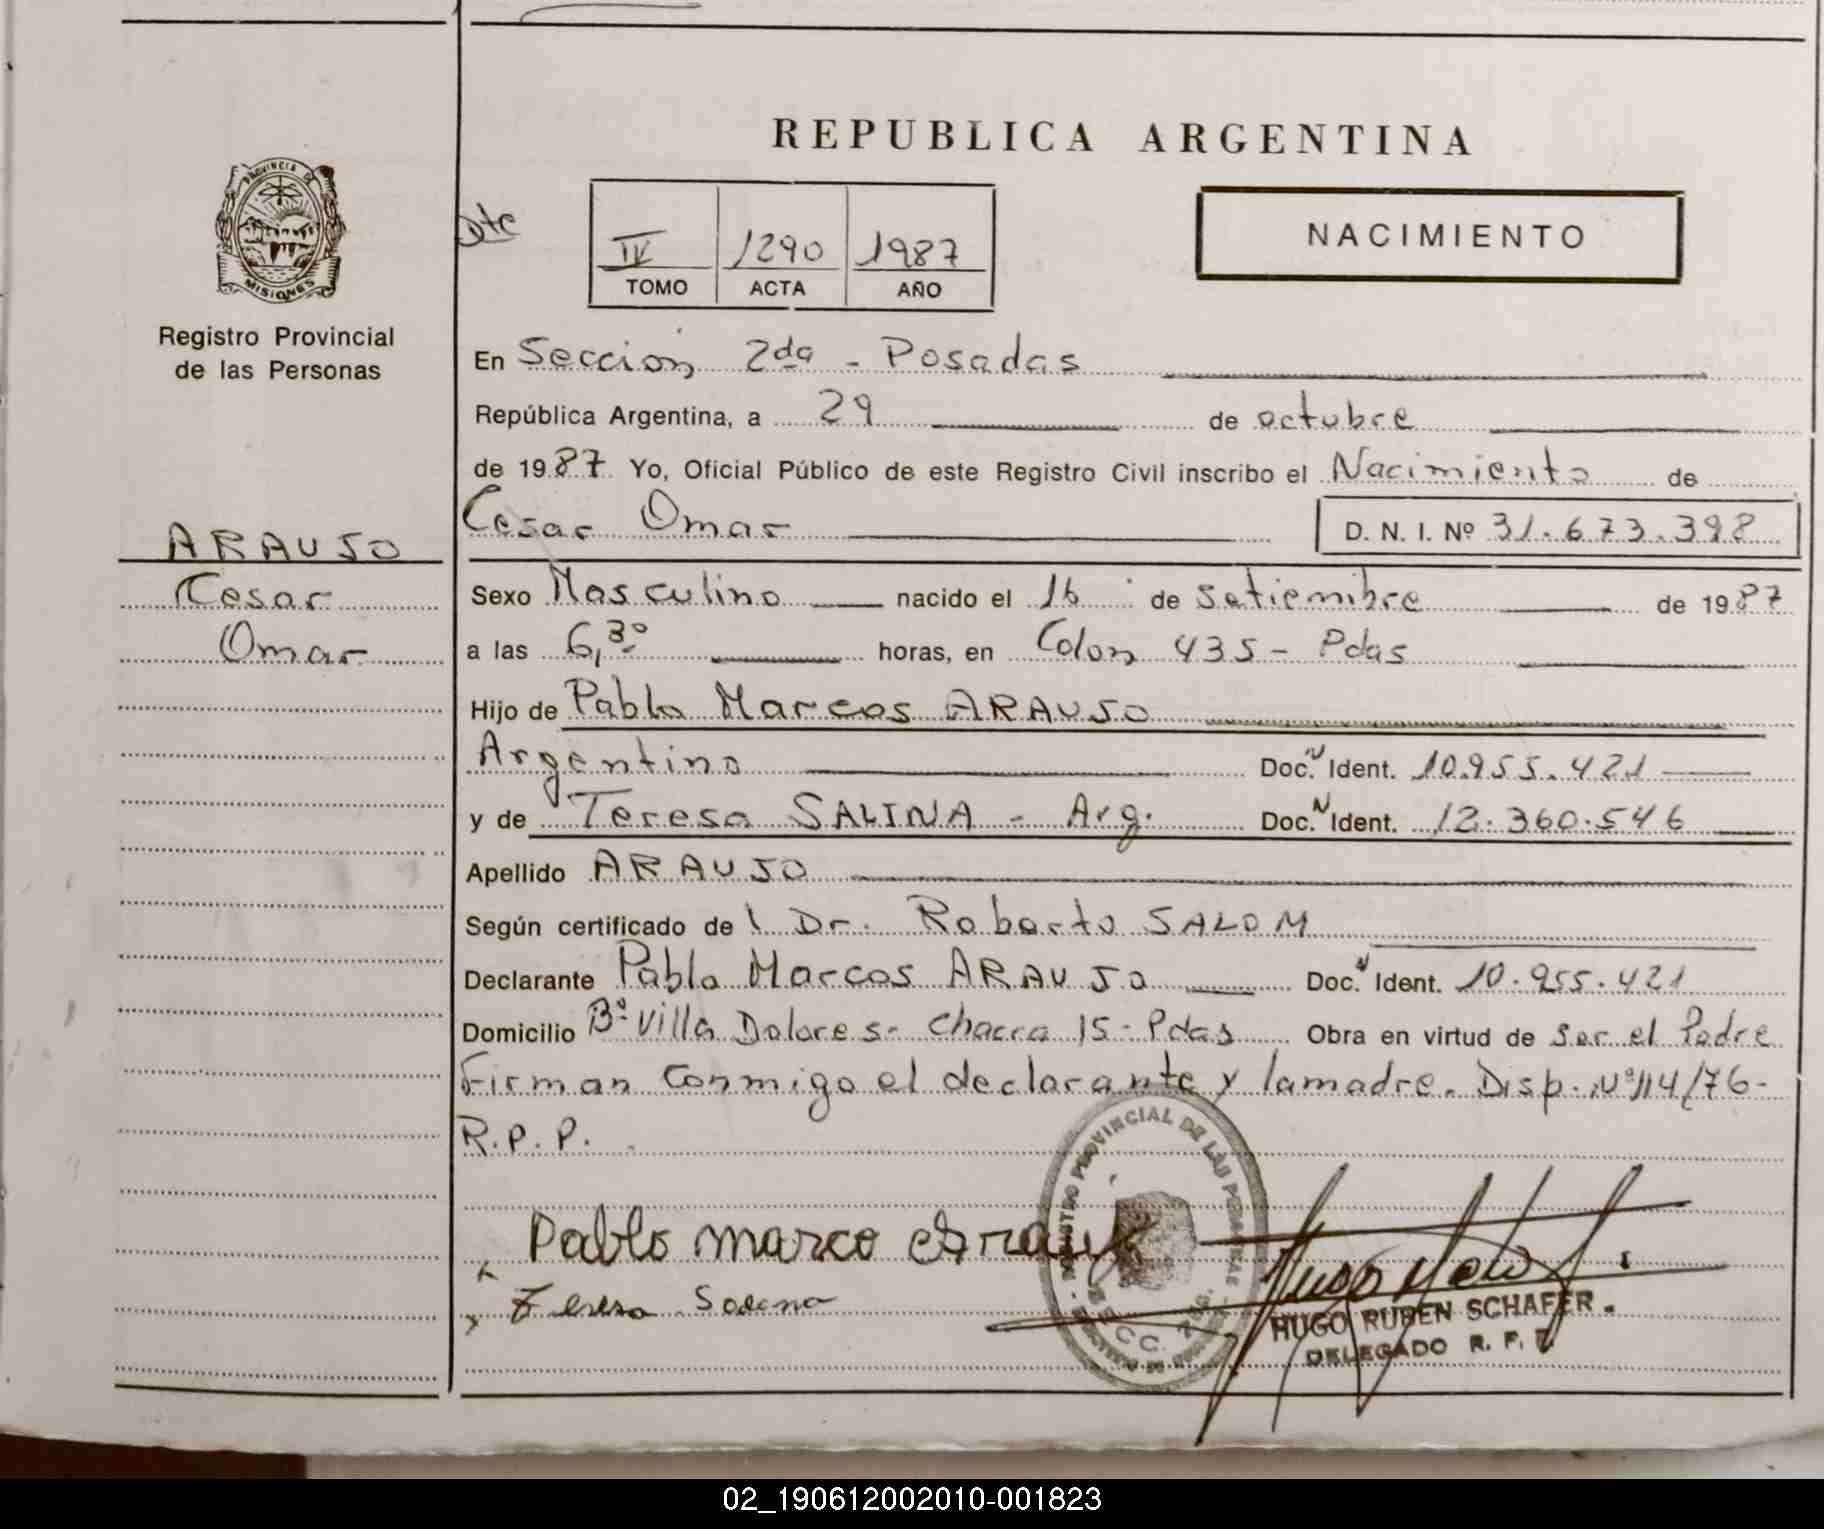 REPUBLICA ARGENTINA
PROVINCIA DE
MISIONES
Registro Provincial
de las Personas
Dte
IV 1290 1987
TOMO ACTA AÑO
NACIMIENTO
En Seccion 2da - Posadas
República Argentina, a 29 de octubre
de 1987 Yo, Oficial Público de este Registro Civil inscribo el Nacimiento de
Cesar Omar D. N. I. Nº 31.673.398
ARAUJO
Cesar
Omar
Sexo Masculino nacido el 16 de Setiembre de 1987
a las 6,30 horas, en Colon 435 - Pdas
Hijo de Pablo Marcos ARAUJO
Argentino Doc. N Ident. 10.955.421
y de Teresa SALINA - Arg. Doc. N Ident. 12.360.546
Apellido ARAUJO
Según certificado de l Dr. Roberto SALOM
Declarante Pablo Marcos ARAUJO Doc. N Ident. 10.955.421
Domicilio Bº Villa Dolores - Chacra 15 - Pdas Obra en virtud de Ser el Padre
Firman Conmigo el declarante y la madre. Disp. Nº 114/76 -
R.P.P.
REGISTRO PROVINCIAL DE LAS PERSONAS
SECC. 2da.
Pablo marco Arauj
Teresa
HUGO RUBEN SCHAFER
DELEGADO R. P.
02_190612002010-001823